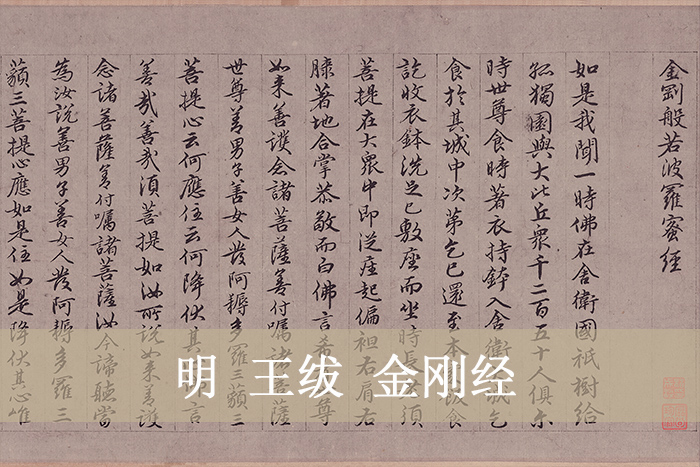 金剛般若波羅蜜經
如是我聞一時佛在舍衛國祇樹給
孤獨園與大比丘眾千二百五十人俱尔
時世尊食時著衣持鉢入舍衛城乞
食於其城中次第乞已還至本飯食
訖收衣鉢洗足已敷座而坐時長須
菩提在大眾中即從座起偏袒右肩右
膝著地合掌恭敬而白佛言希尊
如来善護念諸菩薩善付囑諸菩薩
世尊善男子善女人發阿耨多羅三藐三
菩提心云何應住云何降伏其言
善哉善哉須菩提如汝所說如来善護
念諸菩薩善付囑諸菩薩汝今諦聽當
為汝說善男子善女人發阿耨多羅三
藐三菩提心應如是住如是降伏其心唯
明 王绂 金刚经